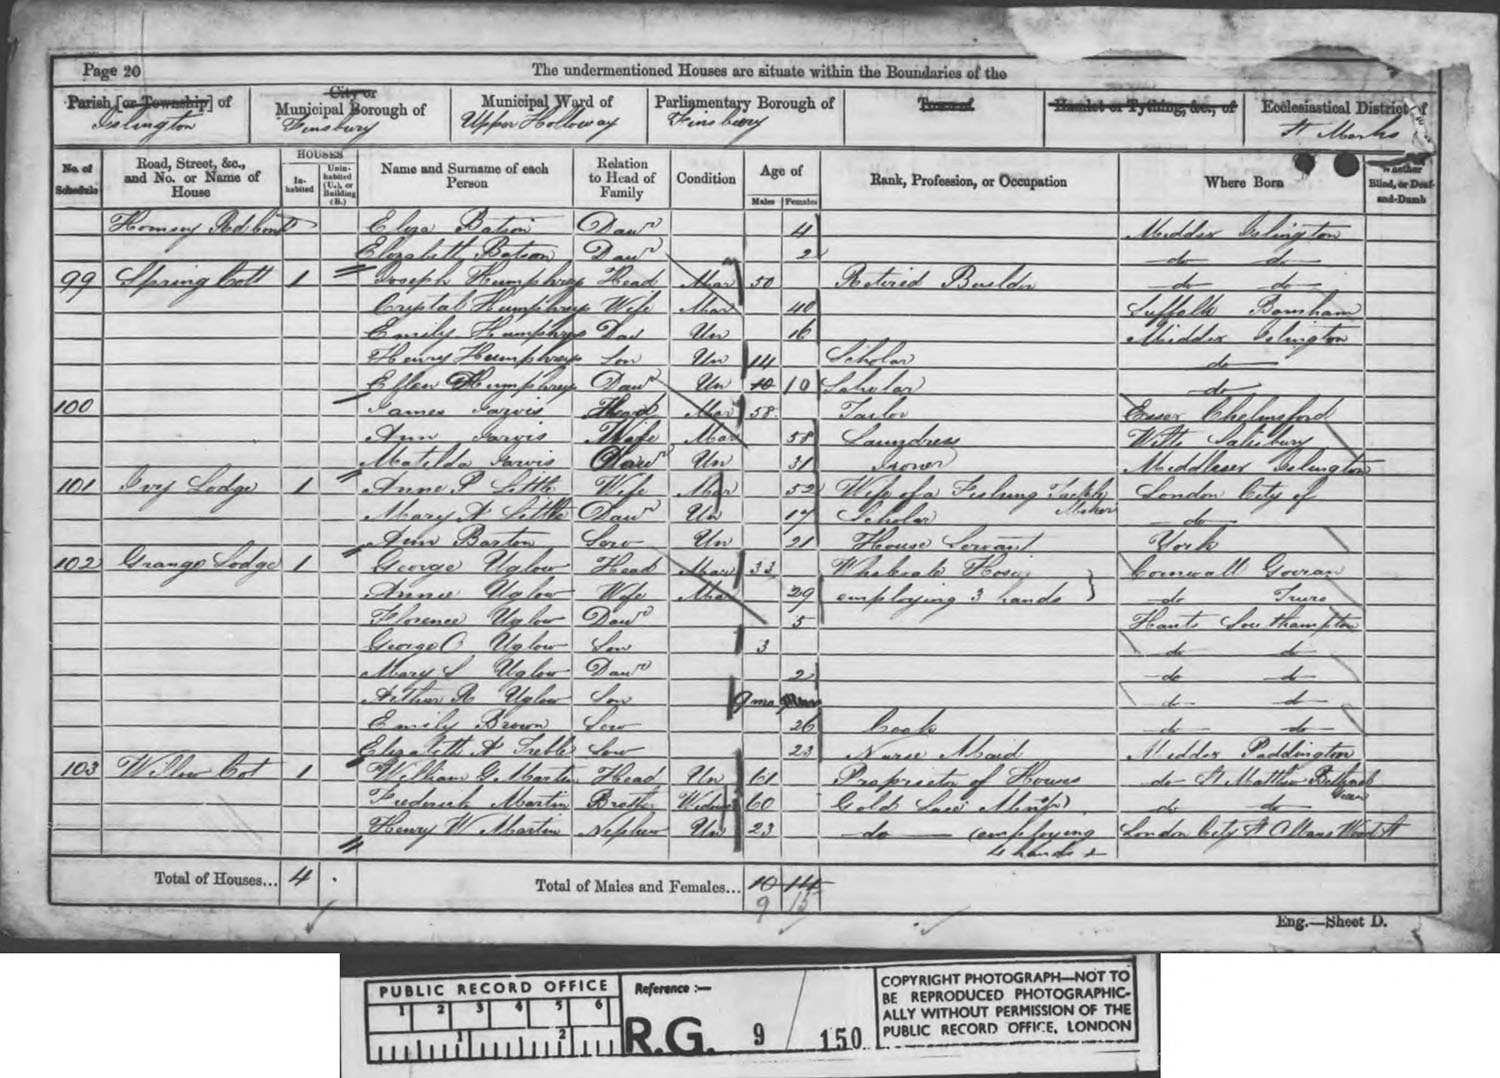 Page 20 The undermentioned Houses are situate within the Boundaries of the
Parish [or Township] of City or Municipal Borough of Municipal Ward of Parliamentary Borough of Town of Hamlet or Tything, &c., of Ecclesiastical District of
Islington Finsbury Upper Holloway Finsbury St Marks
No. of Schedule Road, Street, &c., and No. or Name of House HOUSES In-habited Unin-habited (U.), or Building (B.) Name and Surname of each Person Relation to Head of Family Condition Age of Males Females Rank, Profession, or Occupation Where Born Whether Blind, or Deaf-and-Dumb
Hornsey Rd Eliza Batson Daur 4 Middx Islington
Elizabeth Batson Daur 2 do do
99 Spring Cott 1 Joseph Humphrys Head Mar 50 Retired Builder do do
Crystal Humphrys Wife Mar 40 Suffolk Barnham
Emily Humphrys Dau Un 16 Middx Islington
Henry Humphrys Son Un 14 Scholar do
Ellen Humphrys Daur Un 10 10 Scholar do
100 James Jarvis Head Mar 58 Tailor Essex Chelmsford
Ann Jarvis Wife Mar 58 Laundress Wilts Salisbury
Matilda Jarvis Daur Un 31 Ironer Middlesex Islington
101 Ivy Lodge 1 Anne P Little Wife Mar 52 Wife of a Fishing Tackle Maker London City of
Mary A Little Daur Un 17 Scholar do
Ann Barton Serv Un 21 House Servant York
102 Grange Lodge 1 George Uglow Head Mar 33 Wholesale Hosier Cornwall Gorran
Annie Uglow Wife Mar 29 employing 3 hands } do Truro
Florence Uglow Daur 5 Hants Southampton
George C Uglow Son 3 do do
Mary S Uglow Daur 2 do do
Arthur R Uglow Son 9 mo do do
Emily Brown Serv 26 Cook do do
Elizabeth A Treble Serv 23 Nurse Maid Middx Paddington
103 Willow Cot 1 William G. Martin Head Un 61 Proprietor of Houses do St Matthew Bethnal Green
Frederick Martin Brother Widower 60 Gold Lace do do
Henry W Martin Nephew Un 23 do (employing London City St Albans Wood St
4 hands
Total of Houses... 4 Total of Males and Females... 10 14
9 15
Eng.—Sheet D.
PUBLIC RECORD OFFICE Reference :—
1 2 3 4 5 6
1 2
R.G. 9 / 150
COPYRIGHT PHOTOGRAPH—NOT TO
BE REPRODUCED PHOTOGRAPHIC-
ALLY WITHOUT PERMISSION OF THE
PUBLIC RECORD OFFICE, LONDON